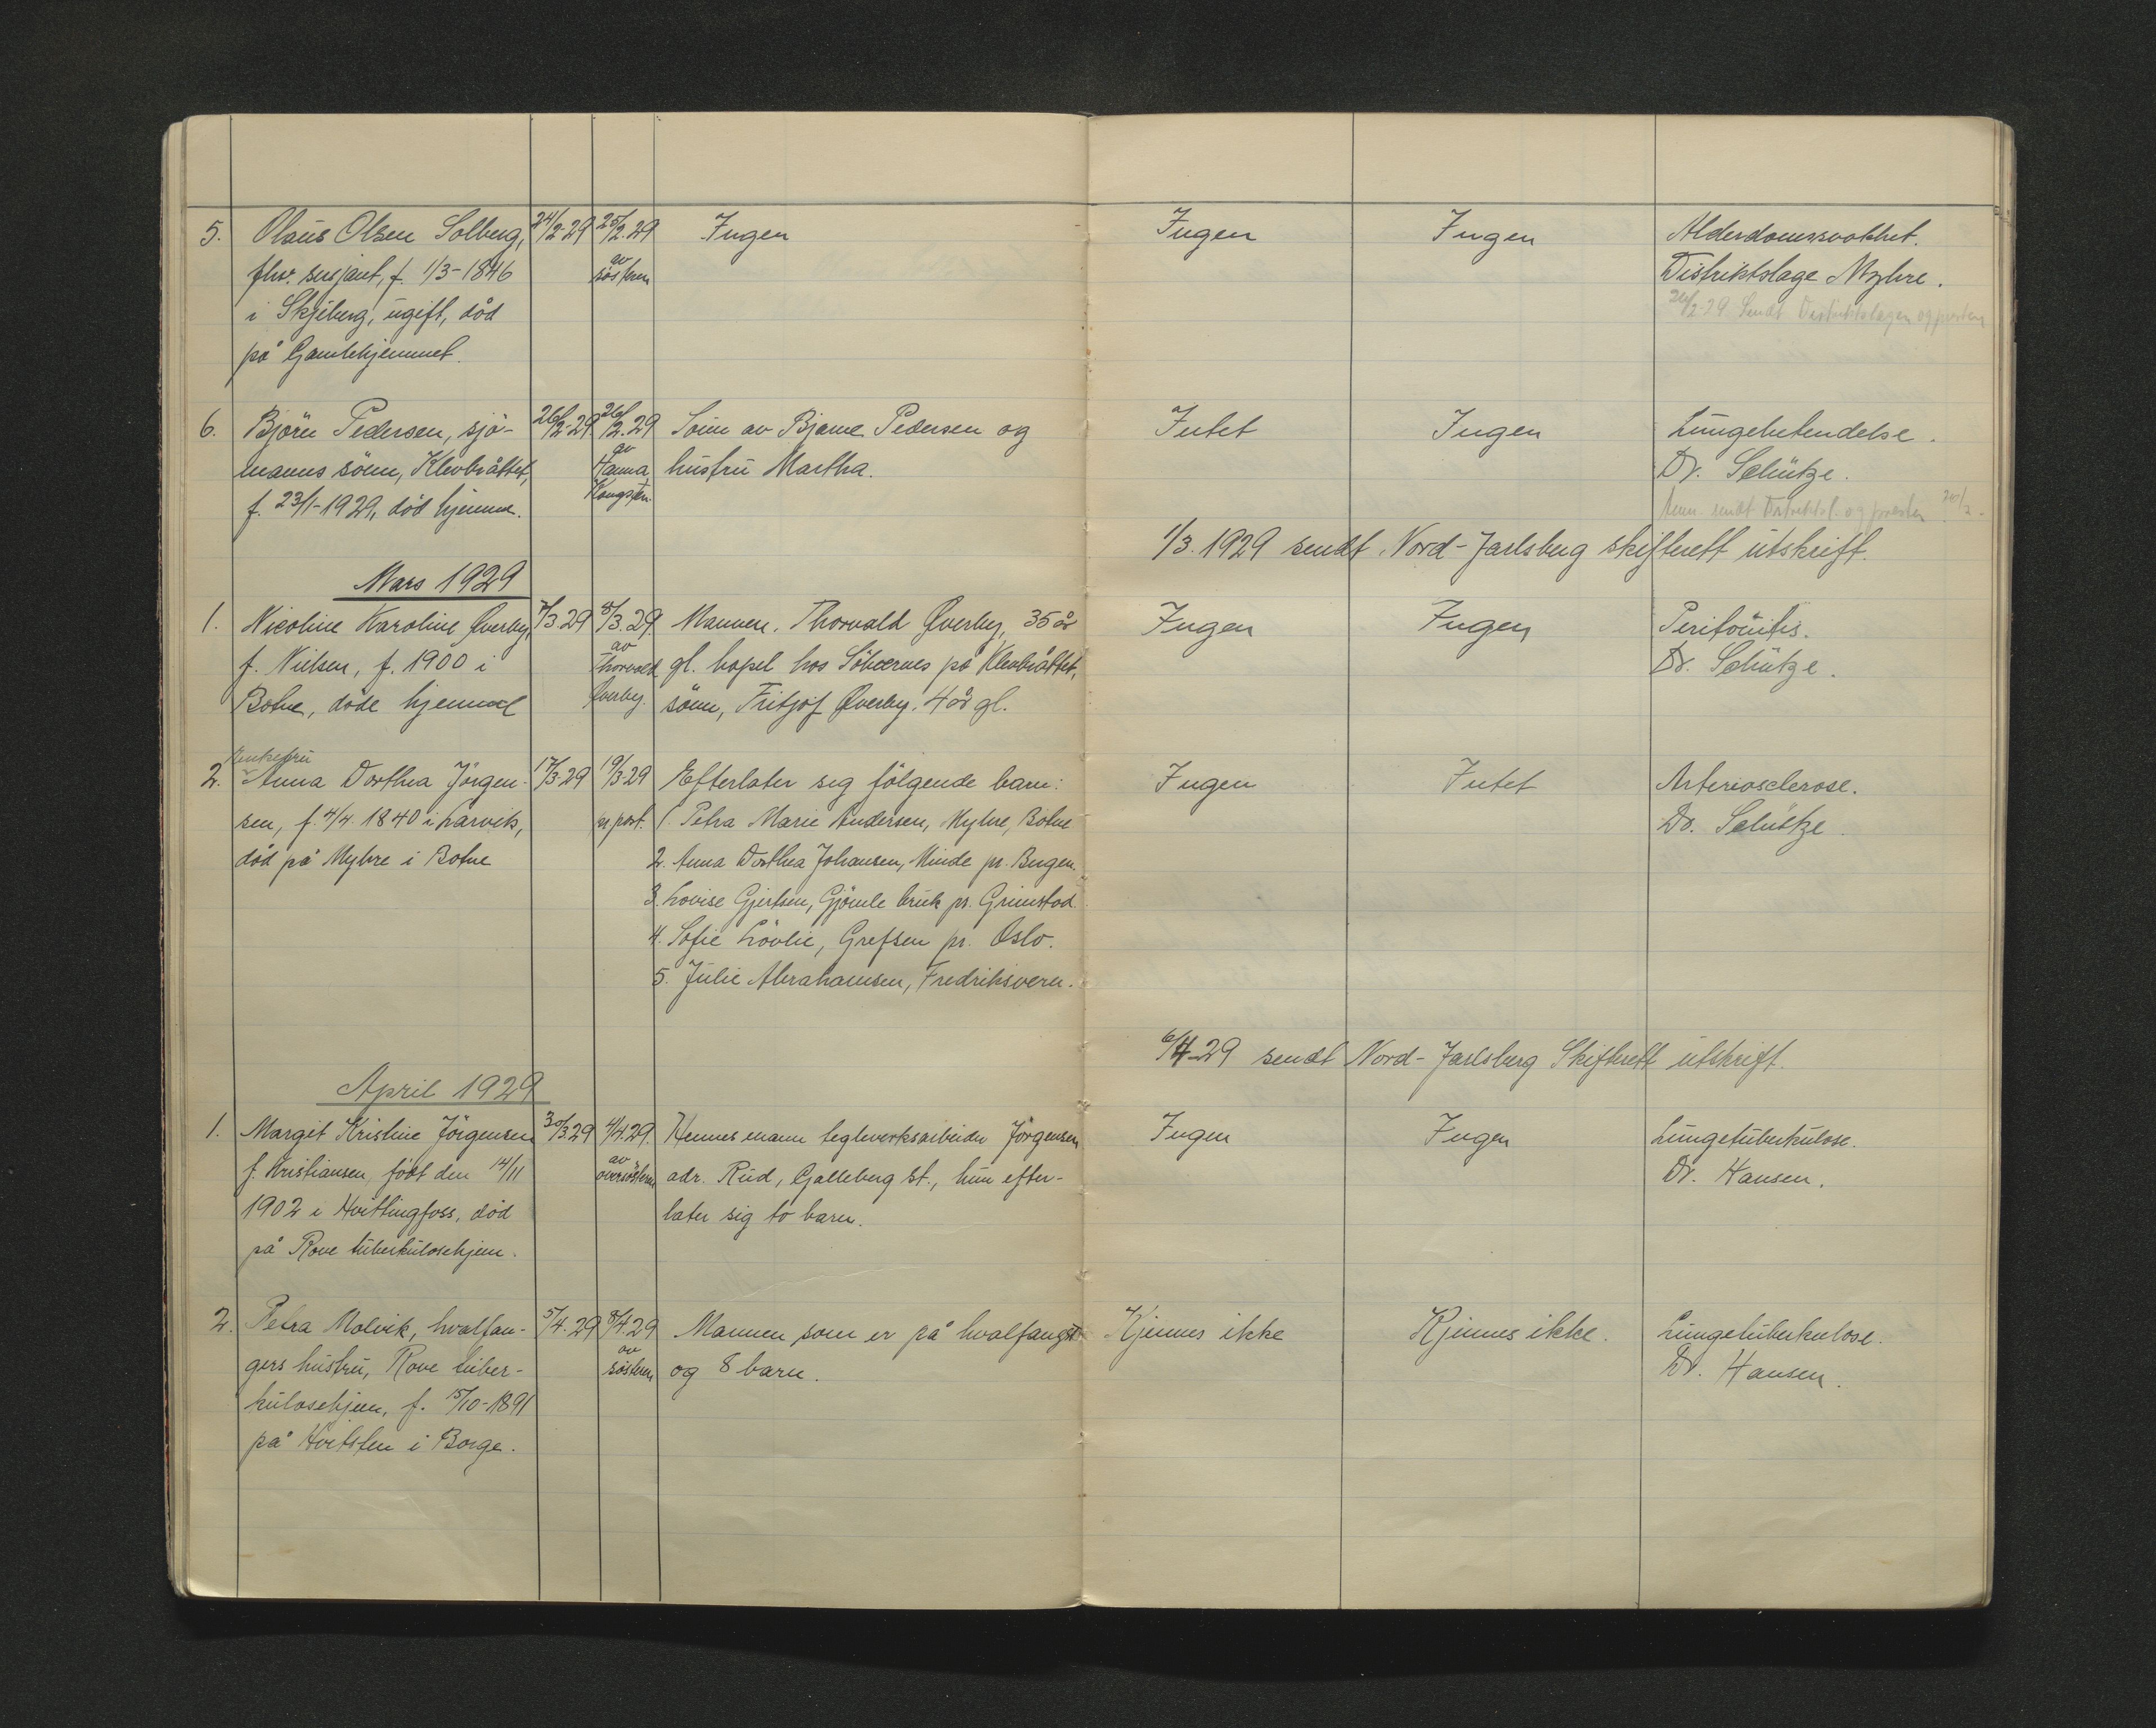 5. Olaus Olsen Solberg, 24/2-29 25/2.29 Ingen Ingen Ingen Alderdomssvakhet.
fhv. sersjant, f. 1/3-1846 av søstren Distriktslæge Myhre.
i Skjeberg, ugift, död 26/2-29 Sendt Distriktslægen og presten
på Gamlehjemmet.
6. Björn Pedersen, sjö- 26/2-29. 26/2.29 Sönn av Bjarne Pedersen og Intet Ingen Lungebetendelse.
manns sönn, Klevbråttet, av Hanna hustru Martha. Dr. Schütze.
f. 23/1-1929, död hjemme. Kongsten. sendt Distriktsl. og presten
1/3.1929 sendt Nord-Jarlsberg skifterett utskrift.
Mars 1929
1. Nicoline Karoline Øverby, 7/3.29 8/3.29 Mannen, Thorvald Øverby, 35 år Ingen Ingen Peritonitis.
f. Nielsen, f. 1900 i av Thorvald gl. hos på Klevbråttet, Dr. Schütze.
Botne, døde hjemme Øverby. sönn, Fritjof Øverby, 4 år gl.
Enkefru
2. Anna Dorthea Jörgen- 17/3-29 19/3-29 Efterlater sig fölgende barn: Ingen Intet Arteriosclerose.
sen, f. 4/4. 1840 i Larvik, pr post. 1. Petra Marie Andersen, Myhre, Botne Dr. Schütze.
död på Myhre i Botne 2. Anna Dorthea Johansen, Minde pr. Bergen.
3. Lovise Gjertsen, Gjömle bruk pr. Grimstad.
4. Sofie Lövlie, Grefsen pr. Oslo.
5. Julie Abrahamsen, Fredriksvern.
6/4-29 sendt Nord-Jarlsberg Skifterett utskrift.
April 1929
1. Margit Kristine Jörgensen 30/3.29 4/4.29. Hennes mann teglverksarbeider Jörgensen Ingen Ingen Lungetuberkulose.
f. Kristiansen, födt den 14/11 av oversösteren adr. Rud, Galleberg st., hun efter- Dr. Hansen.
1902 i Hvittingfoss, död later sig to barn.
på Rove tuberkulosehjem.
2. Petra Molvik, hvalfan- 5/4.29 8/4.29 Mannen som er på hvalfangst Kjennes ikke Kjennes ikke. Lungetuberkulose.
gers hustru, Rove tuber- av søsteren og 8 barn. Dr. Hansen.
kulosehjem, f. 15/10-1891
på Hvitsten i Borge.